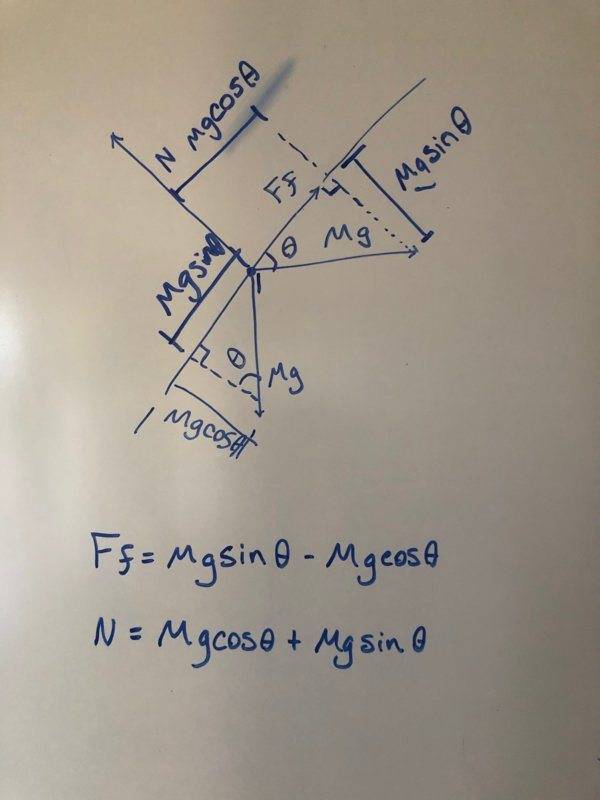 N Mgcosθ
Mgsinθ
Ff
θ
Mg
Mgsinθ
θ
Mg
Mgcosθ
Ff = Mgsinθ - Mgcosθ
N = Mgcosθ + Mgsinθ